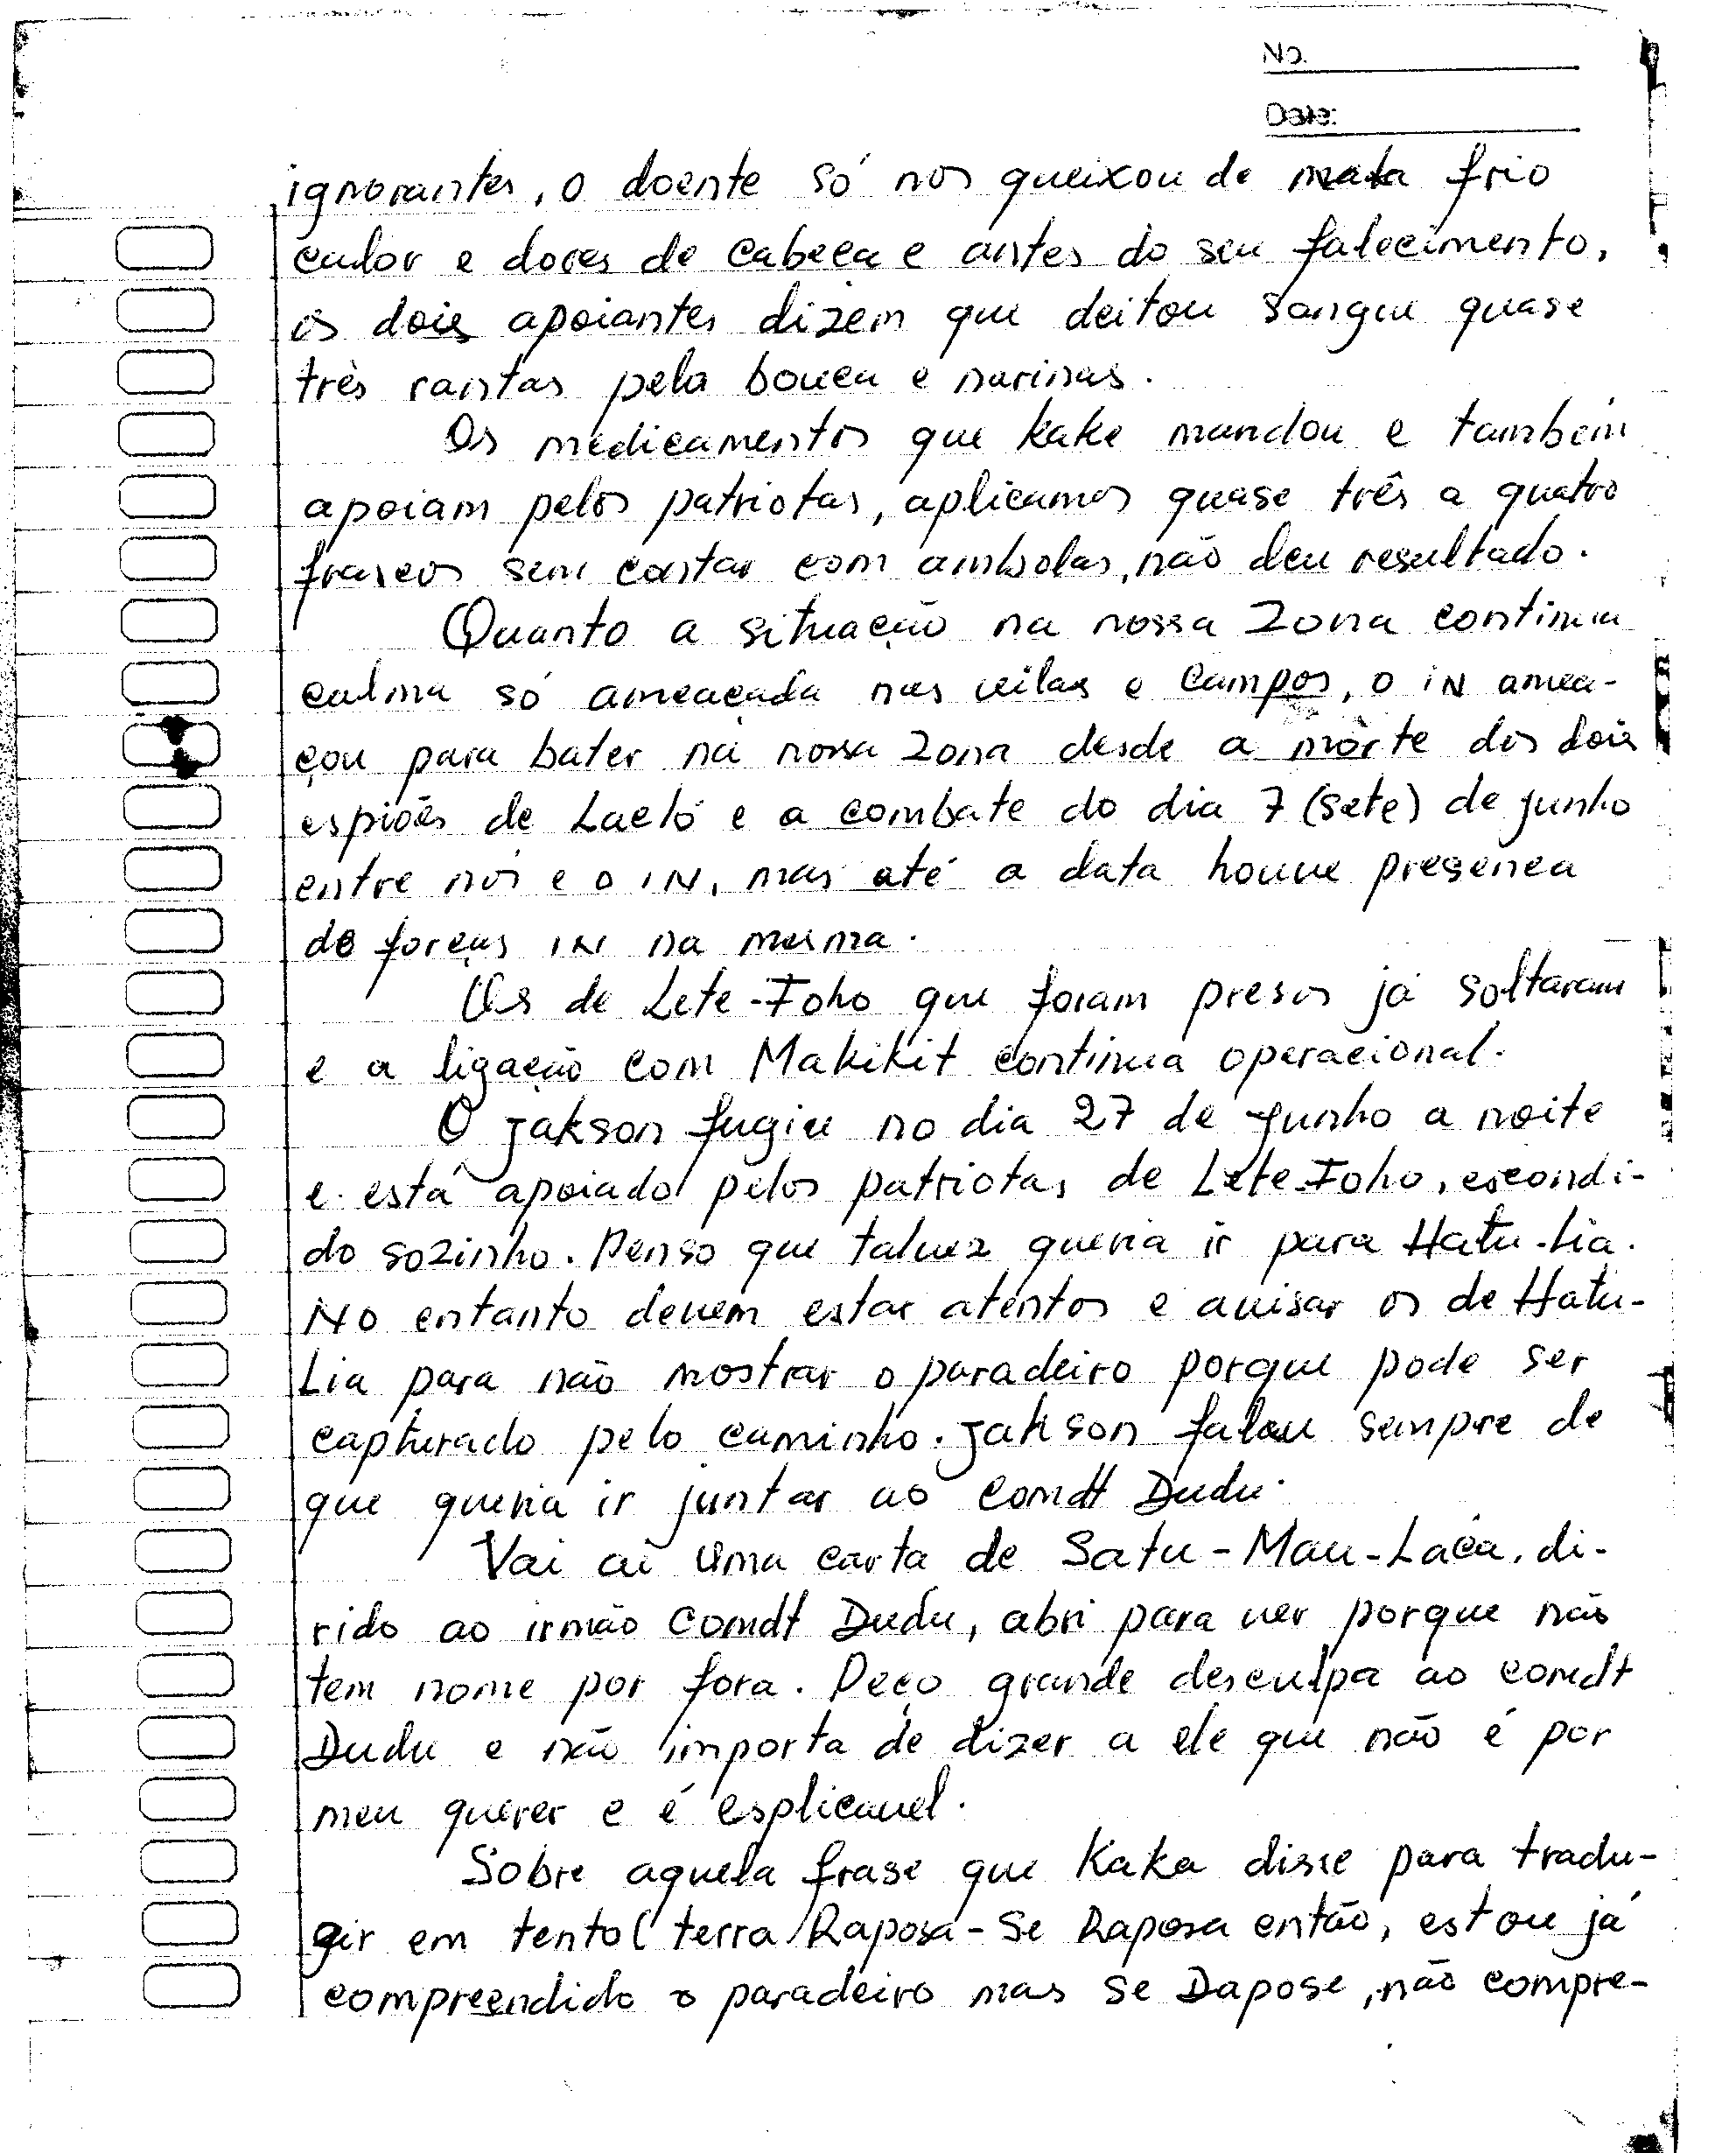 No.
Date:
ignorantes, o doente só nos queixou de mata frio
calor e dores de cabeça e antes do seu falecimento,
os dois apoiantes dizem que deitou sangue quase
três rantas pela bouca e narinas.
Os medicamentos que Kake mandou e também
apoiam pelos patriotas, aplicamos quase três a quatro
frascos sem contar com ambolas, não deu resultado.
Quanto a situação na nossa Zona continua
calma só ameaçada nas vilas e campos, o iN amea-
çou para bater na nossa Zona desde a morte dos dois
espiões de Lacló e a combate do dia 7 (sete) de junho
entre nós e o iN, mas até a data houve presença
de forças iN na mesma.
Os de Lete-Foho que foram presos já soltaram
e a ligação com Makikit continua operacional.
O Jakson fugiu no dia 27 de Junho a noite
e está apoiado pelos patriotas de Lete-Foho, escondi-
do sozinho. Penso que talvez queria ir para Hatu-Lia.
No entanto devem estar atentos e avisar os de Hatu-
Lia para não mostrar o paradeiro porque pode ser
capturado pelo caminho. Jakson falou sempre de
que queria ir juntar ao Comdt Dudu.
Vai aí uma carta de Satu-Mau-Laca, di-
rido ao irmão Comdt Dudu, abri para ver porque não
tem nome por fora. Peço grande desculpa ao comdt
Dudu e não importa de dizer a ele que não é por
meu querer e é esplicavel.
Sobre aquela frase que Kaka disse para tradu-
gir em tento( terra Raposa - Se Raposa então, estou já
compreendido o paradeiro mas se Dapose, não compre-